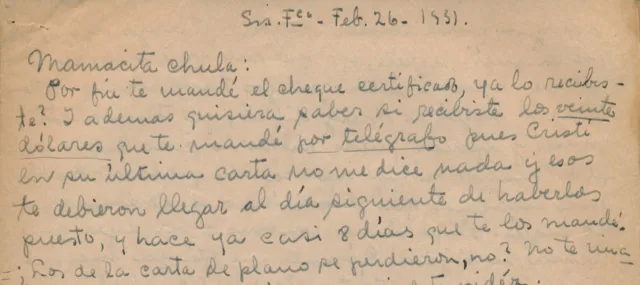 Sn. Fco. - Feb. 26 - 1931.
Mamacita chula:
Por fin te mandé el cheque certificado, ya lo recibis-
te? I ademas quisiera saber si recibiste los veinte
dólares que te mandé por telégrafo pues Cristi
en su última carta no me dice nada y esos
te debieron llegar al día siguiente de haberlos
puesto, y hace ya casi 8 días que te los mandé.
¿Los de la carta de plano se perdieron, no? No te